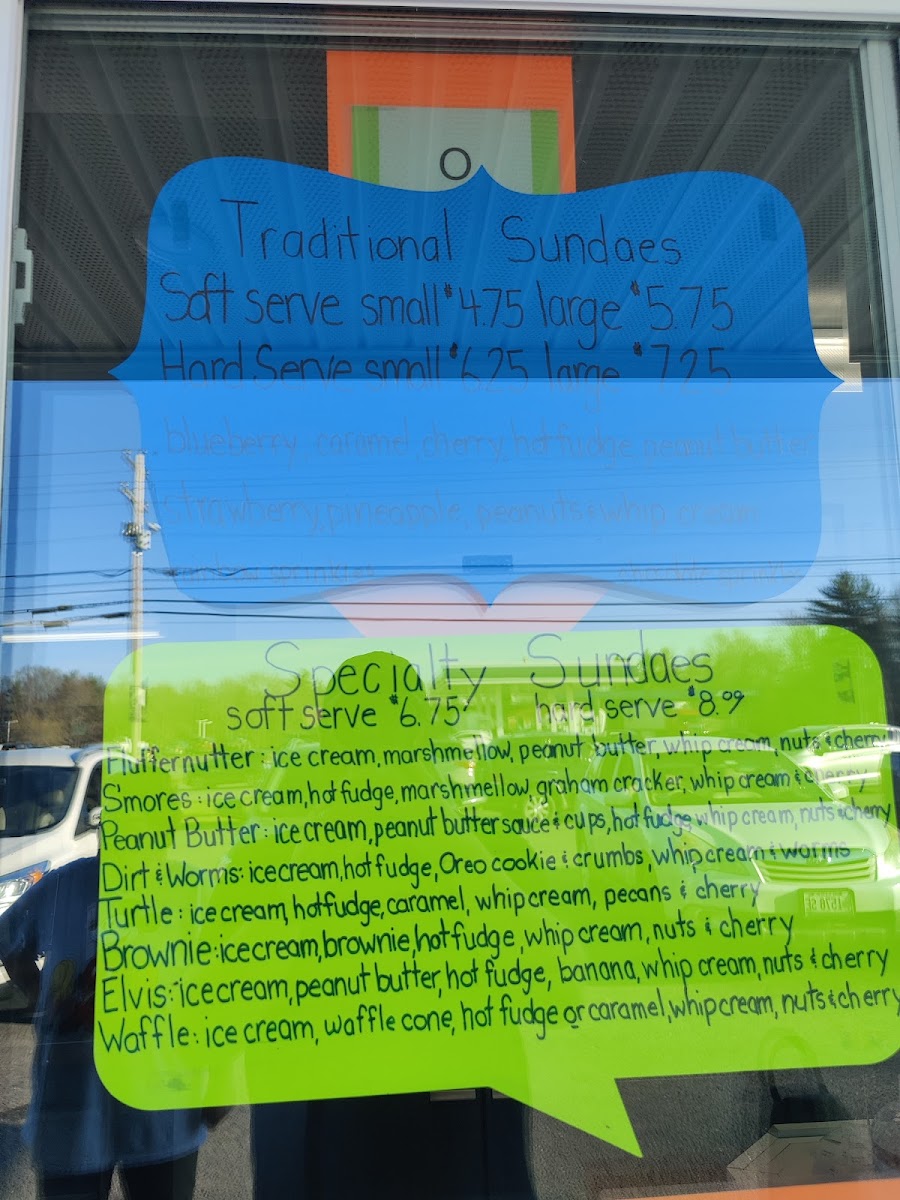 O
Traditional Sundaes
Soft serve small $4.75 large $5.75
Hard Serve small $6.25 large $7.25
blueberry, caramel, cherry, hot fudge, peanut butter
strawberry, pineapple, peanuts & whip cream
rainbow sprinkles chocolate sprinkles
Specialty Sundaes
soft serve $6.75 hard serve $8.99
Fluffernutter: ice cream, marshmellow, peanut butter, whip cream, nuts & cherry
S'mores: ice cream, hot fudge, marshmellow, graham cracker, whip cream & cherry
Peanut Butter: ice cream, peanut butter sauce & cups, hot fudge whip cream, nuts & cherry
Dirt & Worms: ice cream, hot fudge, Oreo cookie & crumbs, whip cream & worms
Turtle: ice cream, hot fudge, caramel, whip cream, pecans & cherry
Brownie: ice cream, brownie, hot fudge, whip cream, nuts & cherry
Elvis: ice cream, peanut butter, hot fudge, banana, whip cream, nuts & cherry
Waffle: ice cream, waffle cone, hot fudge or caramel, whip cream, nuts & cherry